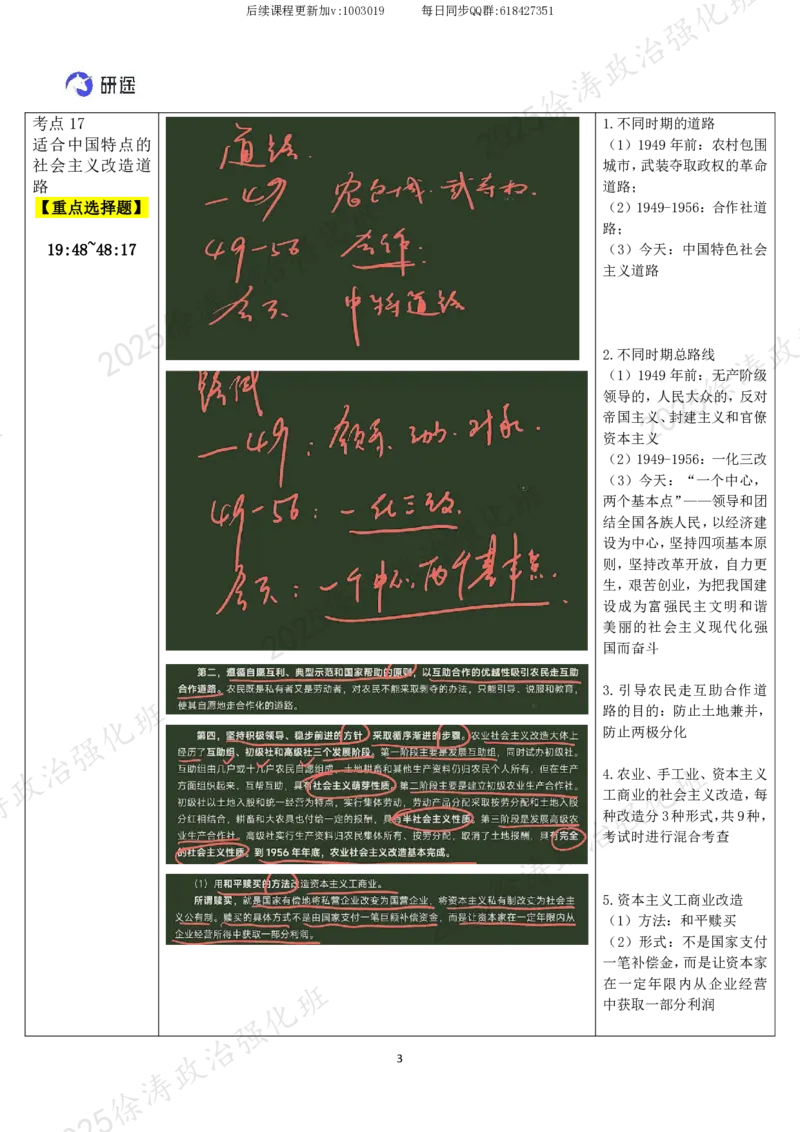 后续课程更新加v:1003019 每日同步QQ群:618427351
研途
考点 17
适合中国特点的
社会主义改造道
路
【重点选择题】
19:48~48:17
道路.
—49 农包城.武夺权.
49-56 合作.
今天 中特道路
路线
—49: 领导.动力.对象.
49-56: 一化三改.
今天: 一个中心,两个基本点.
第二,遵循自愿互利、典型示范和国家帮助的原则,以互助合作的优越性吸引农民走互助
合作道路。农民既是私有者又是劳动者,对农民不能采取剥夺的办法,只能引导、说服和教育,
使其自愿地走合作化的道路。
第四,坚持积极领导、稳步前进的方针,采取循序渐进的步骤。农业社会主义改造大体上
经历了互助组、初级社和高级社三个发展阶段。第一阶段主要是发展互助组,同时试办初级社。
互助组由几户或十几户农民自愿组成,土地耕畜和其他生产资料仍归农民个人所有,但在生产
方面组织起来,互帮互助,具有社会主义萌芽性质。第二阶段主要是建立初级农业生产合作社。
初级社以土地入股和统一经营为特点,实行集体劳动,劳动产品分配采取按劳分配和土地入股
分红相结合,耕畜和大农具也付给一定的报酬,具有半社会主义性质。第三阶段是发展高级农
业生产合作社。高级社实行生产资料归农民集体所有、按劳分配,取消了土地报酬,具有完全
的社会主义性质。到 1956 年年底,农业社会主义改造基本完成。
(1)用和平赎买的方法改造资本主义工商业。
所谓赎买,就是国家有偿地将私营企业改变为国营企业,将资本主义私有制改变为社会主
义公有制。赎买的具体方式不是由国家支付一笔巨额补偿资金,而是让资本家在一定年限内从
企业经营所得中获取一部分利润。
1.不同时期的道路
(1)1949 年前:农村包围
城市,武装夺取政权的革命
道路;
(2)1949-1956:合作社道
路;
(3)今天:中国特色社会
主义道路
2.不同时期总路线
(1)1949 年前:无产阶级
领导的,人民大众的,反对
帝国主义、封建主义和官僚
资本主义
(2)1949-1956:一化三改
(3)今天:“一个中心,
两个基本点”——领导和团
结全国各族人民,以经济建
设为中心,坚持四项基本原
则,坚持改革开放,自力更
生,艰苦创业,为把我国建
设成为富强民主文明和谐
美丽的社会主义现代化强
国而奋斗
3.引导农民走互助合作道
路的目的:防止土地兼并,
防止两极分化
4.农业、手工业、资本主义
工商业的社会主义改造,每
种改造分 3 种形式,共 9 种,
考试时进行混合考查
5.资本主义工商业改造
(1)方法:和平赎买
(2)形式:不是国家支付
一笔补偿金,而是让资本家
在一定年限内从企业经营
中获取一部分利润
3
2025徐涛政治强化班